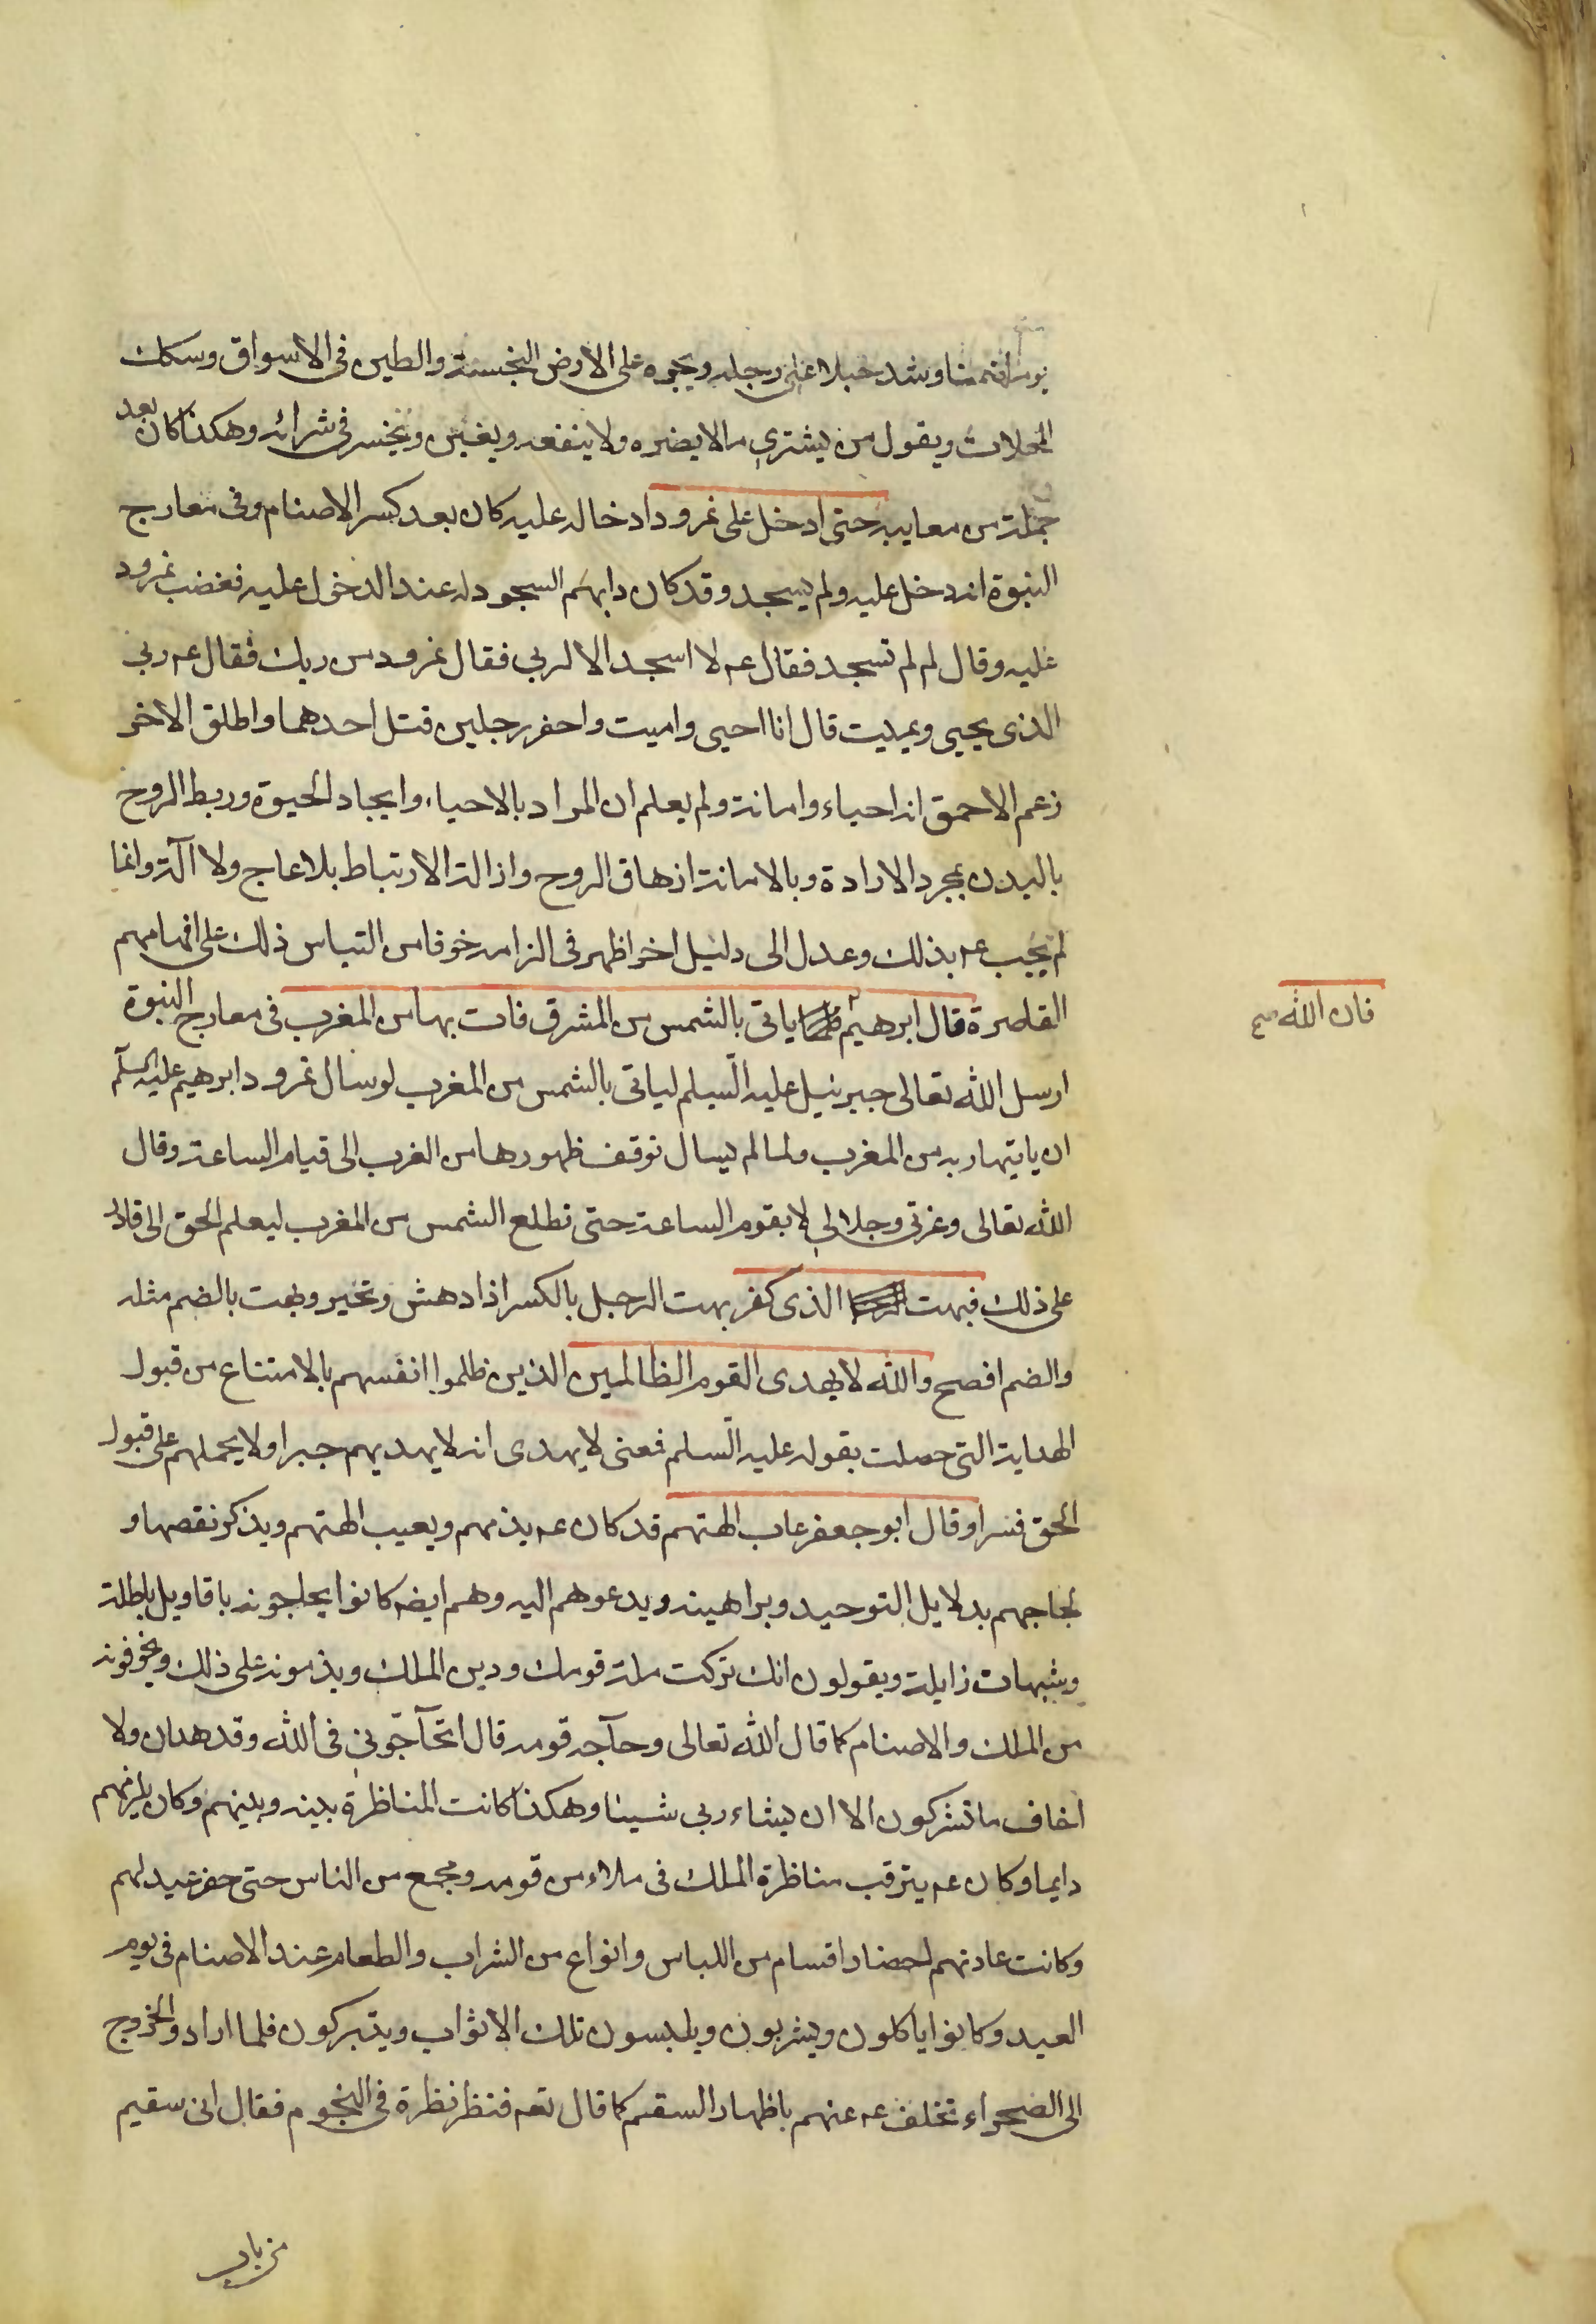 يوما صنما وشد حبلا على رجله ويجره على الارض النجسة والطين فى الاسواق وسكك
المحلات ويقول من يشترى ما لا يضره ولا ينفعه ويغبن ويخسر فى شرائه وهكذا كان بعد
جملة من معايبه حتى ادخل على نمرود ادخاله عليه كان بعد كسر الاصنام وفى معارج
النبوة انه دخل عليه ولم يسجد وقد كان دابهم السجود له عند الدخول عليه فغضب نمرود
عليه وقال لم لم تسجد فقال عم لا اسجد الا لربى فقال نمرود من ربك فقال عم ربى
الذى يحيى ويميت قال انا احيى واميت واحضر رجلين قتل احدهما واطلق الاخر
زعم الاحمق انه احياء واماتة ولم يعلم ان المراد بالاحياء وايجاد الحيوة وربط الروح
بالبدن بمجرد الارادة وبالاماتة ازهاق الروح وازالة الارتباط بلا علاج ولا آلة وانما
لم يجب عم بذلك وعدل الى دليل اخر اظهر فى الزامه خوفا من التباس ذلك على افهامهم
القاصرة قال ابرهيم ياتى بالشمس من المشرق فات بها من المغرب فى معارج النبوة
فان الله صح
ارسل الله تعالى جبرئيل عليه السلم لياتى بالشمس من المغرب لو سال نمرود ابرهيم عليه السلم
ان ياتيها ربه من المغرب ولما لم يسال توقف ظهورها من الغرب الى قيام الساعة وقال
الله تعالى وعزتى وجلالى لا يقوم الساعة حتى تطلع الشمس من المغرب ليعلم الخلق انى قادر
على ذلك فبهت الذى كفر بهت الرجل بالكسر اذا دهش وتحير وبهت بالضم مثله
والضم افصح والله لا يهدى القوم الظالمين الذين ظلموا انفسهم بالامتناع من قبول
الهداية التى حصلت بقوله عليه السلم فمعنى لا يهدى انه لا يهديهم جبرا ولا يحملهم على قبول
الحق قسرا وقال ابو جعفر عاب الهتهم قد كان عم يذمهم ويعيب الهتهم ويذكر نقصها و
يحاجهم بدلايل التوحيد وبراهينه ويدعوهم اليه وهم ايضه كانوا يحاجونه باقاويل باطلة
وشبهات زايلة ويقولون انك تركت ملة قومك ودين الملك ويذمونه على ذلك ويخوفونه
من الملك والاصنام كما قال الله تعالى وحآجه قومه قال اتحآجّونى فى الله وقد هدان ولا
اخاف ما تشركون الا ان يشاء ربى شيئا وهكذا كانت المناظرة بينه وبينهم وكان يلزمهم
دايما وكان عم يترقب مناظرة الملك فى ملاء من قومه ومجمع من الناس حتى حضر عيد لهم
وكانت عادتهم احضار اقسام من اللباس وانواع من الشراب والطعام عند الاصنام فى يوم
العيد وكانوا ياكلون ويشربون ويلبسون تلك الاثواب ويتبركون فلما ارادوا الخروج
الى الصحراء تخلف عم عنهم باظهار السقم كما قال تعه فنظر نظرة فى النجوم فقال انى سقيم